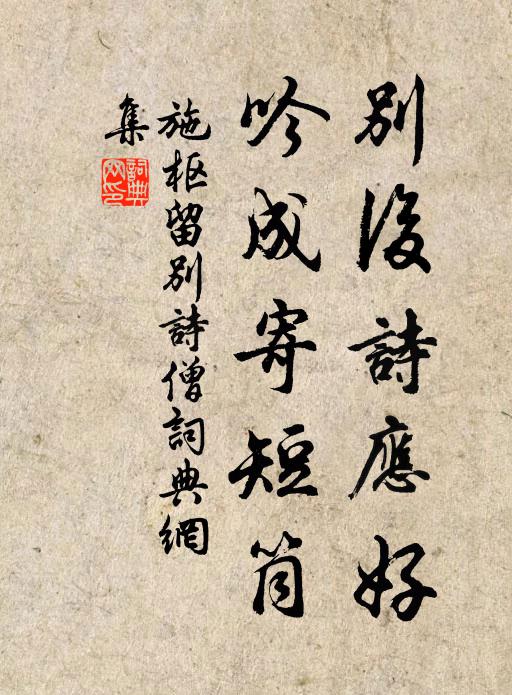 別後詩應好
吟成寄短筒
施枢留別詩僧詞典網
集
詞典
网印